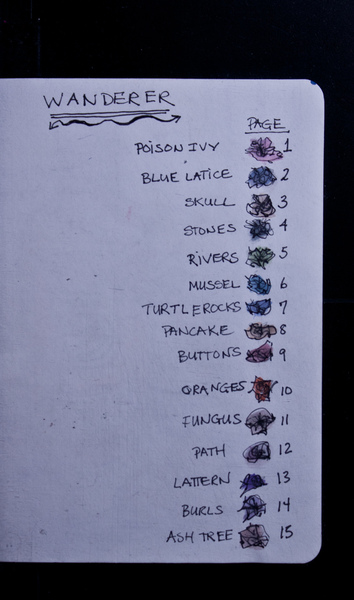 WANDERER
PAGE
POISON IVY 1
BLUE LATICE 2
SKULL 3
STONES 4
RIVERS 5
MUSSEL 6
TURTLEROCKS 7
PANCAKE 8
BUTTONS 9
ORANGES 10
FUNGUS 11
PATH 12
LATTERN 13
BURLS 14
ASH TREE 15